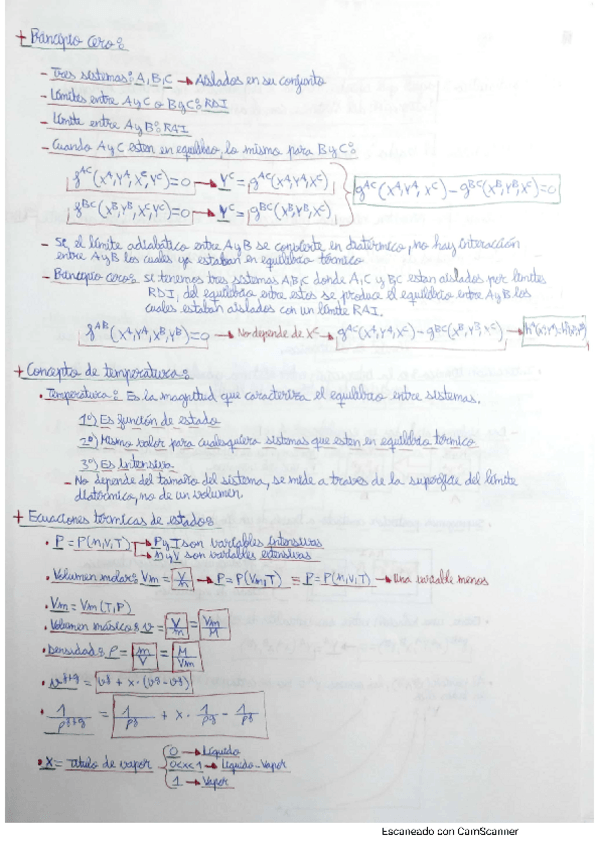 + Principio cero:
- Tres sistemas: A, B, C → Aislados en su conjunto
- Límites entre A y C o B y C: RDI
- Límite entre A y B: RAI
- Cuando A y C esten en equilibrio, lo mismo para B y C:
f^AC (X^A, Y^A, X^C, Y^C) = 0 → Y^C = g^AC (X^A, Y^A, X^C)
g^AC (X^A, Y^A, X^C) - g^BC (X^B, Y^B, X^C) = 0
f^BC (X^B, Y^B, X^C, Y^C) = 0 → Y^C = g^BC (X^B, Y^B, X^C)
- Si el límite adiabático entre A y B se convierte en diatérmico, no hay interacción
entre A y B los cuales ya estaban en equilibrio térmico
- Principio cero: si tenemos tres sistemas A, B, C donde A, C y B, C estan aislados por límites
RDI, del equilibrio entre estos se produce el equilibrio entre A y B los
cuales estaban aislados con un límite RAI.
f^AB (X^A, Y^A, X^B, Y^B) = 0 → No depende de X^C → g^AC (X^A, Y^A, X^C) - g^BC (X^B, Y^B, X^C) →
+ Concepto de temperatura:
• Temperatura: Es la magnitud que caracteriza el equilibrio entre sistemas.
1º) Es función de estado
2º) Mismo valor para cualesquiera sistemas que esten en equilibrio térmico
3º) Es Intensiva
- No depende del tamaño del sistema, se mide a traves de la superficie del límite
diatérmico, no de un volumen.
+ Ecuaciones térmicas de estado:
• P = P(n, V, T) → P y T son variables intensivas
→ n y V son variables extensivas
• Volumen molar: Vm = V/n → P = P(Vm, T) ≡ P = P(n, V, T) → una variable menos
• Vm = Vm (T, P)
• Volumen másico: v = V/m = Vm/M
• Densidad: ρ = m/V = M/Vm
• v^f+g = vf + x · (vg - vf)
• 1/ρ^f+g = 1/ρf + x · 1/ρg - 1/ρf
• X = título de vapor
0 → Líquido
0<x<1 → Líquido-Vapor
1 → Vapor
Escaneado con CamScanner